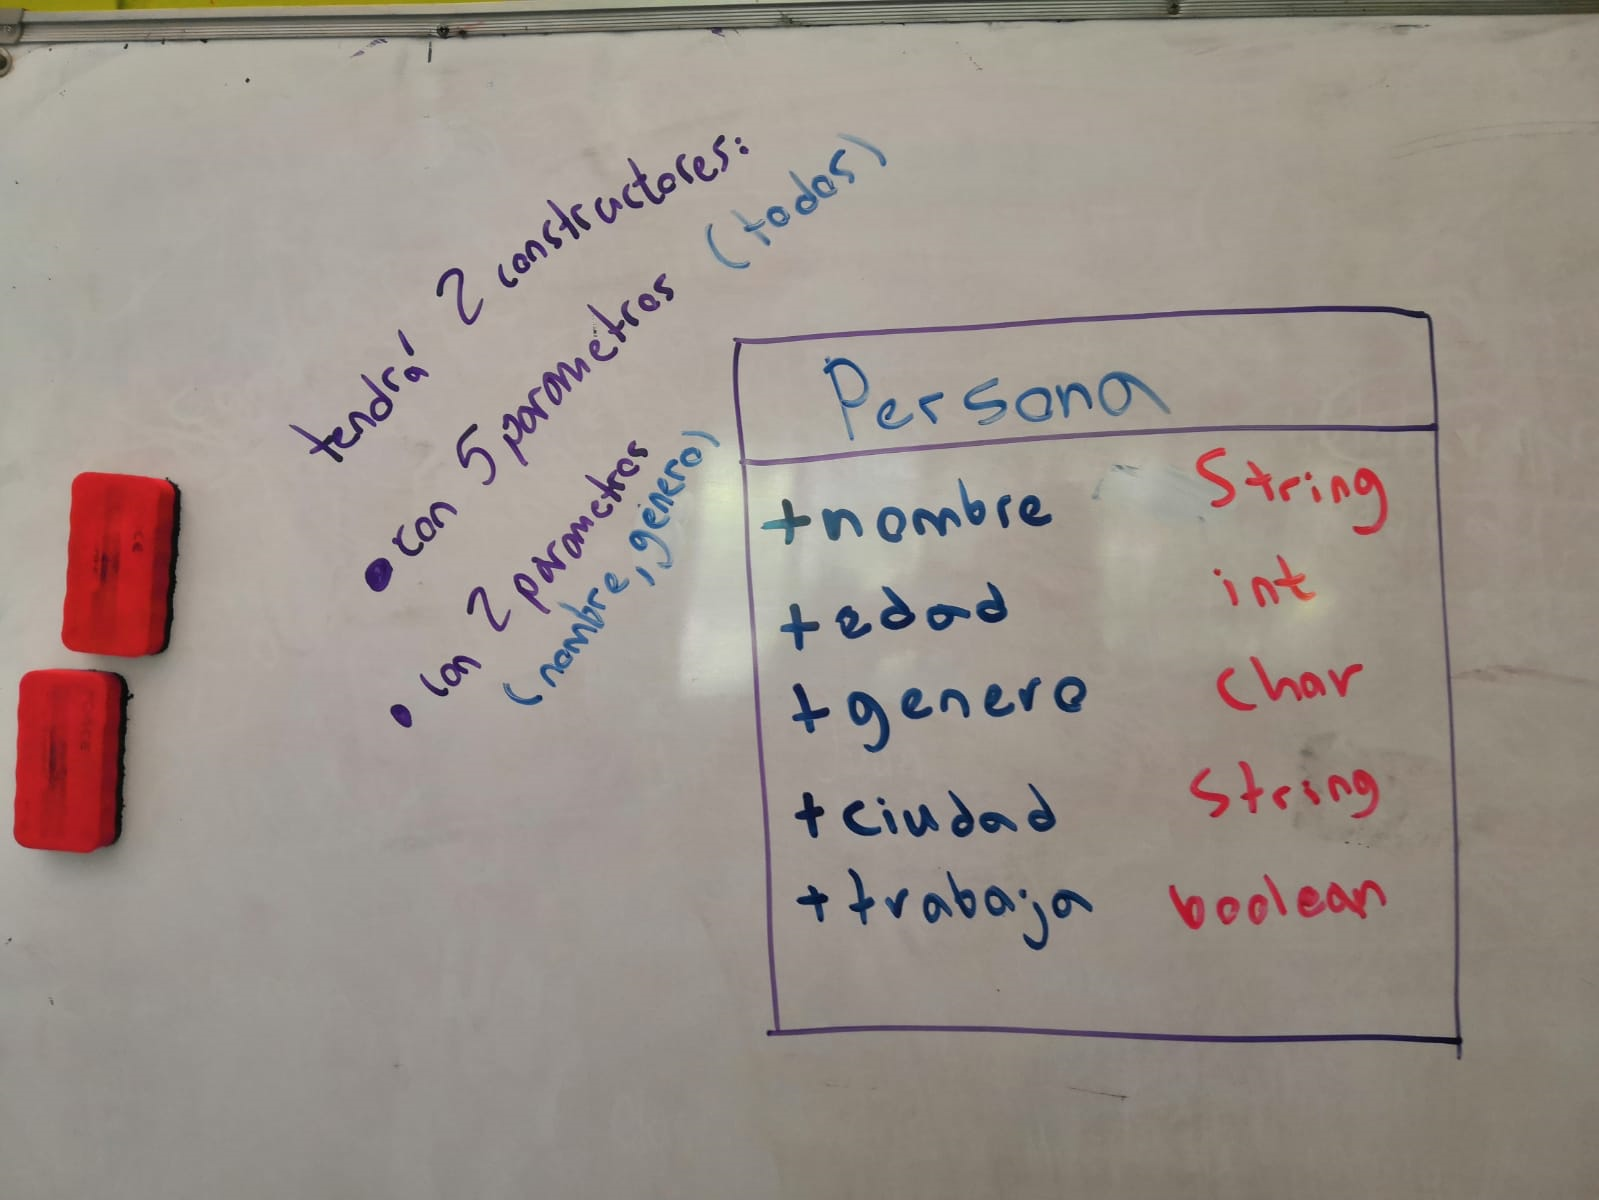 tendrá 2 constructores:
• con 5 parametros (todos)
• con 2 parametros
(nombre, género)
Persona
+nombre String
+edad int
+genero char
+ciudad String
+trabaja boolean